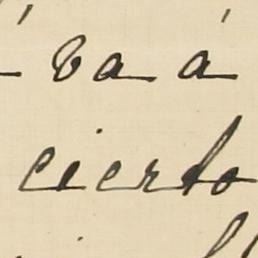 va á
cierto